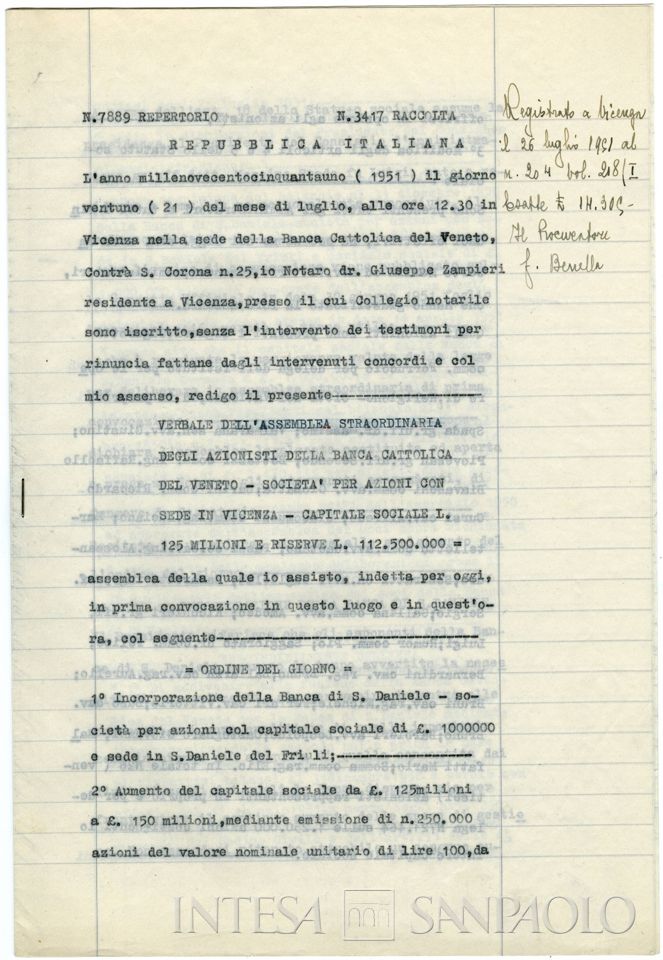 N.7889 REPERTORIO N.3417 RACCOLTA
REPUBBLICA ITALIANA
L'anno millenovecentocinquantauno ( 1951 ) il giorno
ventuno ( 21 ) del mese di luglio, alle ore 12.30 in
Vicenza nella sede della Banca Cattolica del Veneto,
Contrà S. Corona n.25,io Notaro dr. Giuseppe Zampieri
residente a Vicenza,presso il cui Collegio notarile
sono iscritto,senza l'intervento dei testimoni per
rinuncia fattane dagli intervenuti concordi e col
mio assenso, redigo il presente-----------------
VERBALE DELL'ASSEMBLEA STRAORDINARIA
DEGLI AZIONISTI DELLA BANCA CATTOLICA
DEL VENETO - SOCIETA' PER AZIONI CON
SEDE IN VICENZA - CAPITALE SOCIALE L.
125 MILIONI E RISERVE L. 112.500.000 =
assemblea della quale io assisto, indetta per oggi,
in prima convocazione in questo luogo e in quest'o-
ra, col seguente------------------------------
= ORDINE DEL GIORNO =
1° Incorporazione della Banca di S. Daniele - so-
cietà per azioni col capitale sociale di £. 1000000
e sede in S.Daniele del Friuli;----------------
2° Aumento del capitale sociale da £. 125milioni
a £. 150 milioni,mediante emissione di n.250.000
azioni del valore nominale unitario di lire 100,da
Registrato a Vicenza
il 26 luglio 1951 al
n. 204 vol. 218/I
Esatte £ 14.305-
Il Procuratore
f. Benella
INTESA SANPAOLO